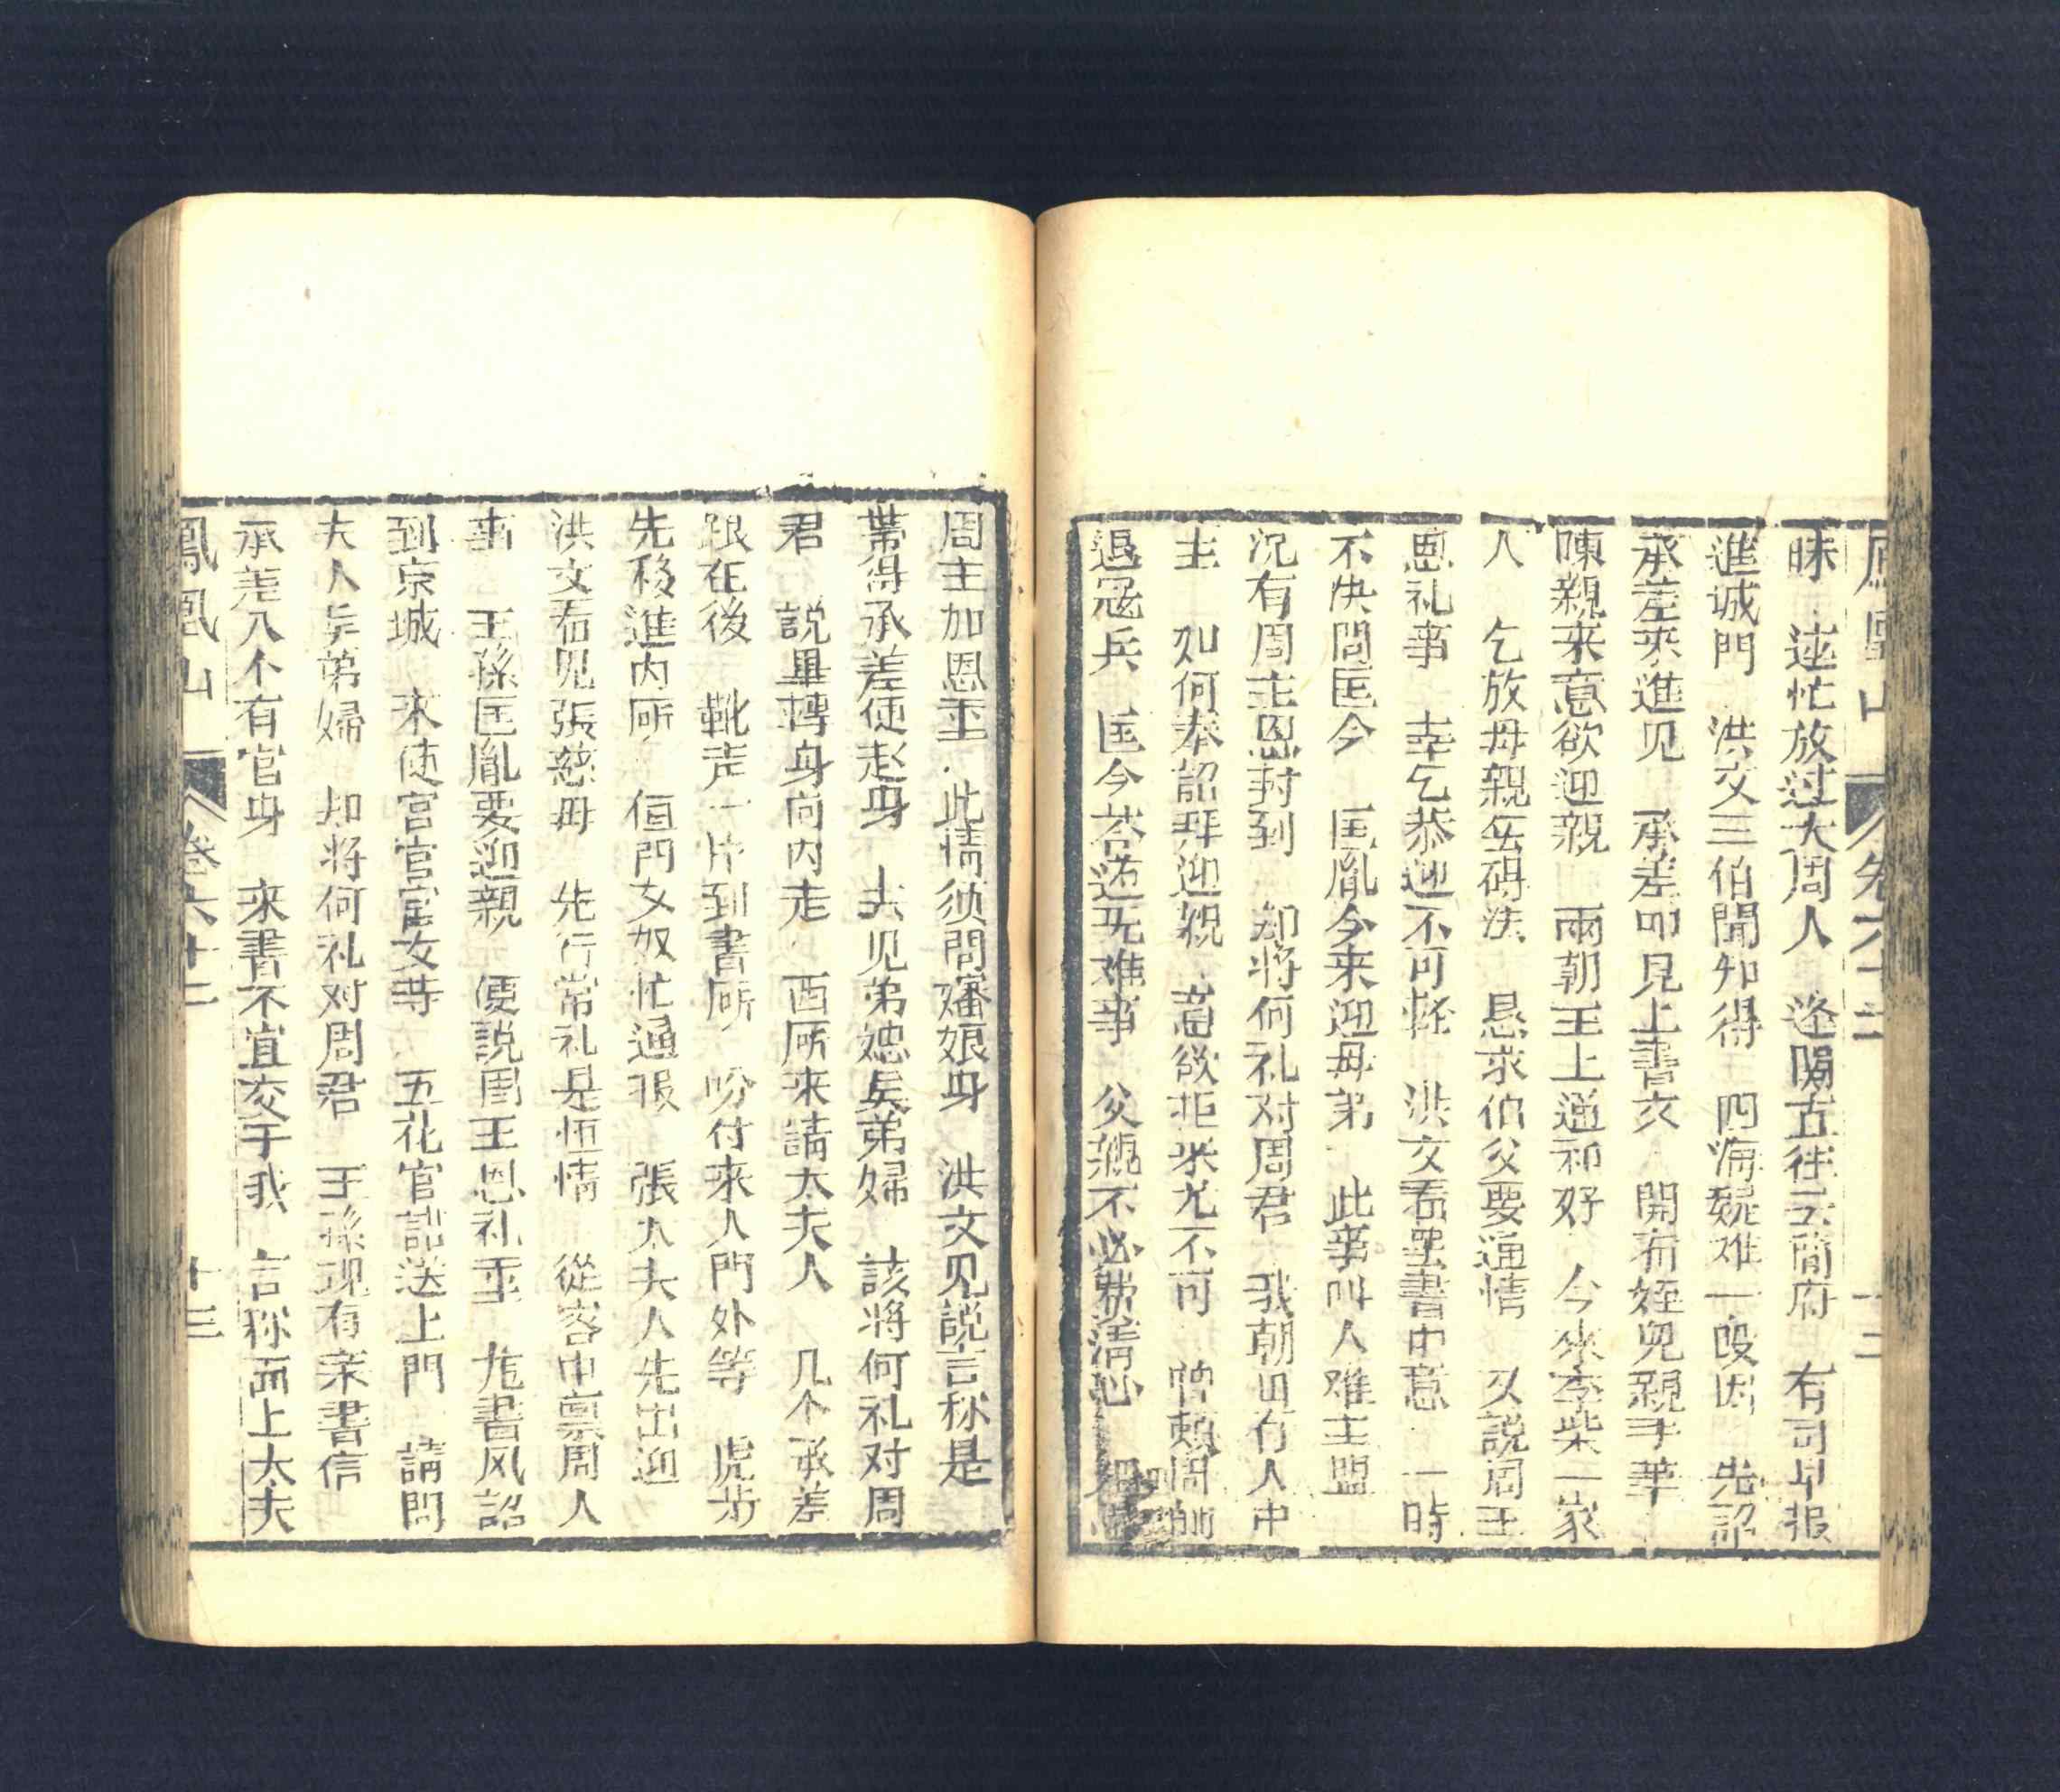 鳳凰山 卷六十二 十二
昧 連忙放过大周人 逢関古往云南府 有司早报
進城門 洪文三伯聞知得 四海疑难一段因 先詔
承差来進见 承差叩见上書文 開看姪兒親手筆
陳親来意欲迎親 兩朝王上通和好 今来李柴一家
人 乞放母親岳碍法 恳求伯父要通情 又説周王
恩礼事 幸乞恭迎不可輕 洪文看罢書中意 一時
不快問匡今 匡胤今来迎母弟 此事叫人难主盟
况有周主恩封到 却將何礼对周君 我朝也有人中
主 如何奉詔拜迎親 意欲拒来尤不可 曾賴周師
退冦兵 匡今荅道无难事 父親不必費清心
周主加恩重 此情须問嬸娘身 洪文见説言称是
帶得承差使起身 去见弟媳矣弟婦 該將何礼对周
君 説畢轉身向内走 西厛来請太夫人 几个承差
跟在後 靴声一片到書厛 吩付来人門外等 虎步
先移進内厛 值門女奴忙通报 張太夫人先出迎
洪文看见張慈母 先行常礼是恒情 從容中禀周人
事 王孫匡胤要迎親 便説周王恩礼重 龙書风詔
到京城 來使宫官宦女等 五花官誥送上門 請問
夫人与弟婦 却將何礼对周君 王孫現有亲書信
承差八个有官身 來書不宜交于我 言称面上太夫
鳳凰山 卷六十二 十三